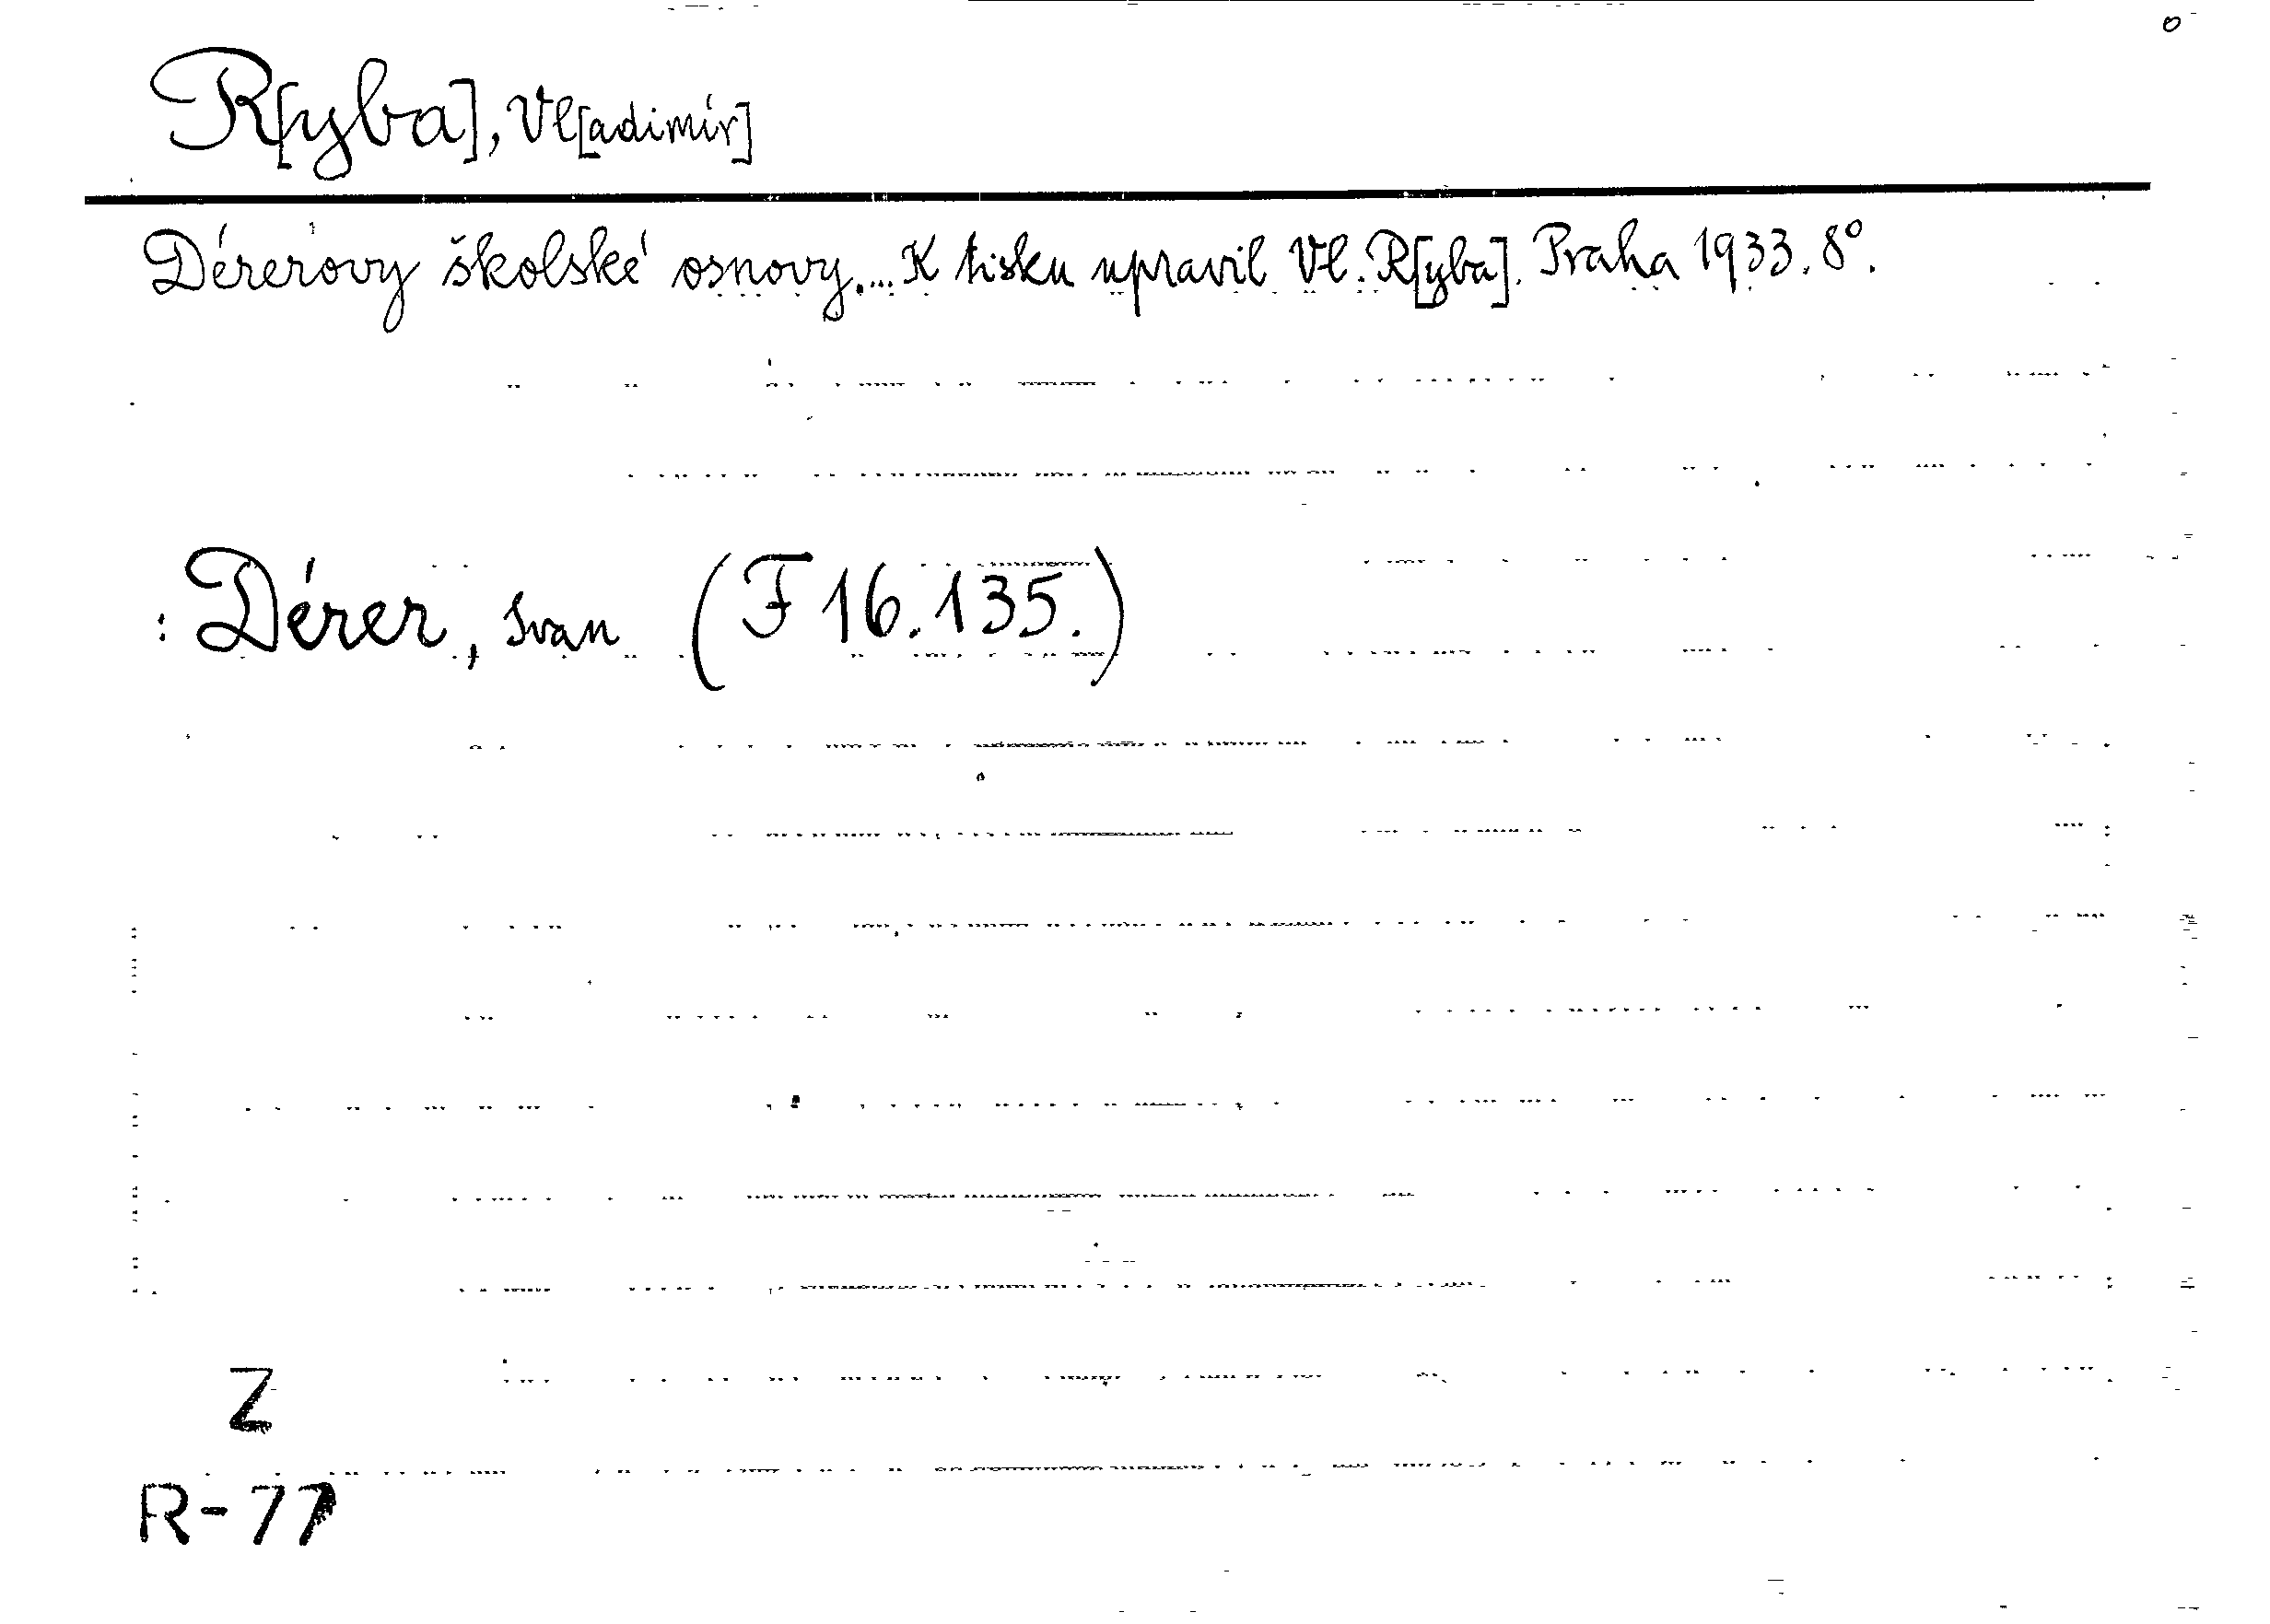 R[yba], Vl[adimír]
Dérerovy školské osnovy.... K tisku upravil Vl. R[yba]. Praha 1933. 8°.
: Dérer, Ivan (F 16.135.)
Z
R-77